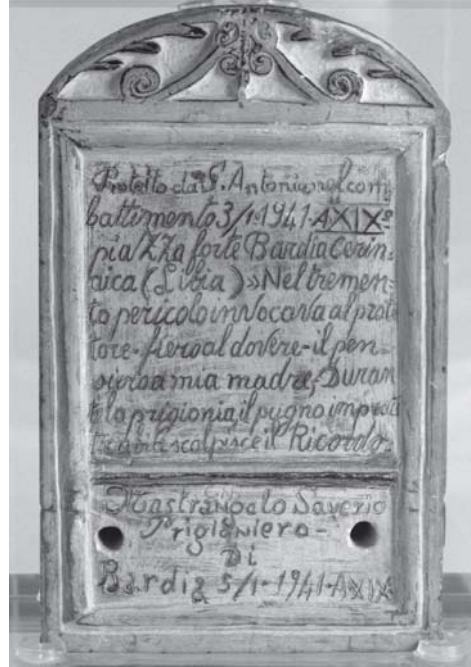 Protetto da S. Antonio nel com
battimento 3/1-1941-AXIXº
piaZZa forte Bardia Ceren-
aica (Libia) » Nel tremen-
to pericolo inVocaVa al prote
tore-fiero al doVere-il pen-
siero a mia madre, Duran
te la prigionia, il pugno
scalpisce il Ricordo-
Mastrangelo Saverio
Prigioniero-
Di
Bardia 5/1-1941-AXIX